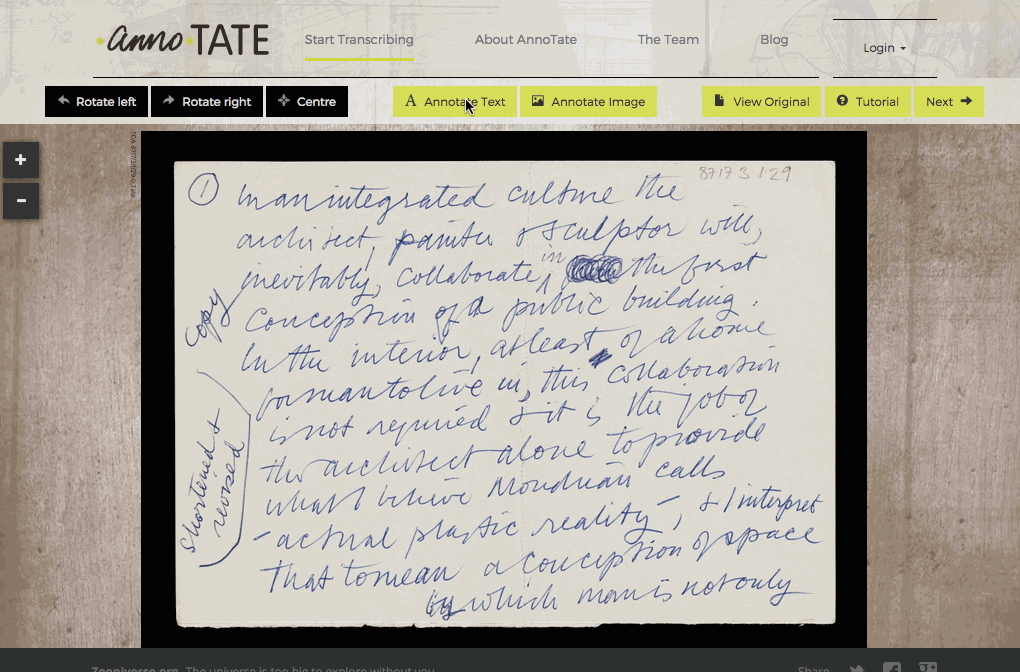 anno TATE
Start Transcribing
About AnnoTate
The Team
Blog
Login
Rotate left
Rotate right
Centre
Annotate Text
Annotate Image
View Original
Tutorial
Next
+
−
8717 3 1 29
① In an integrated culture the
architect, painter & sculptor will,
inevitably, collaborate, in the first
conception of a public building.
In the interior, at least of a home
for man to live in, this collaboration
is not required & it is the job of
the architect alone to provide
what I believe Mondrian calls
- actual plastic reality -, & I interpret
that to mean a conception of space
by which man is not only
Copy
Shortened &
revised
Zooniverse.org The universe is too big to explore without you.
Share